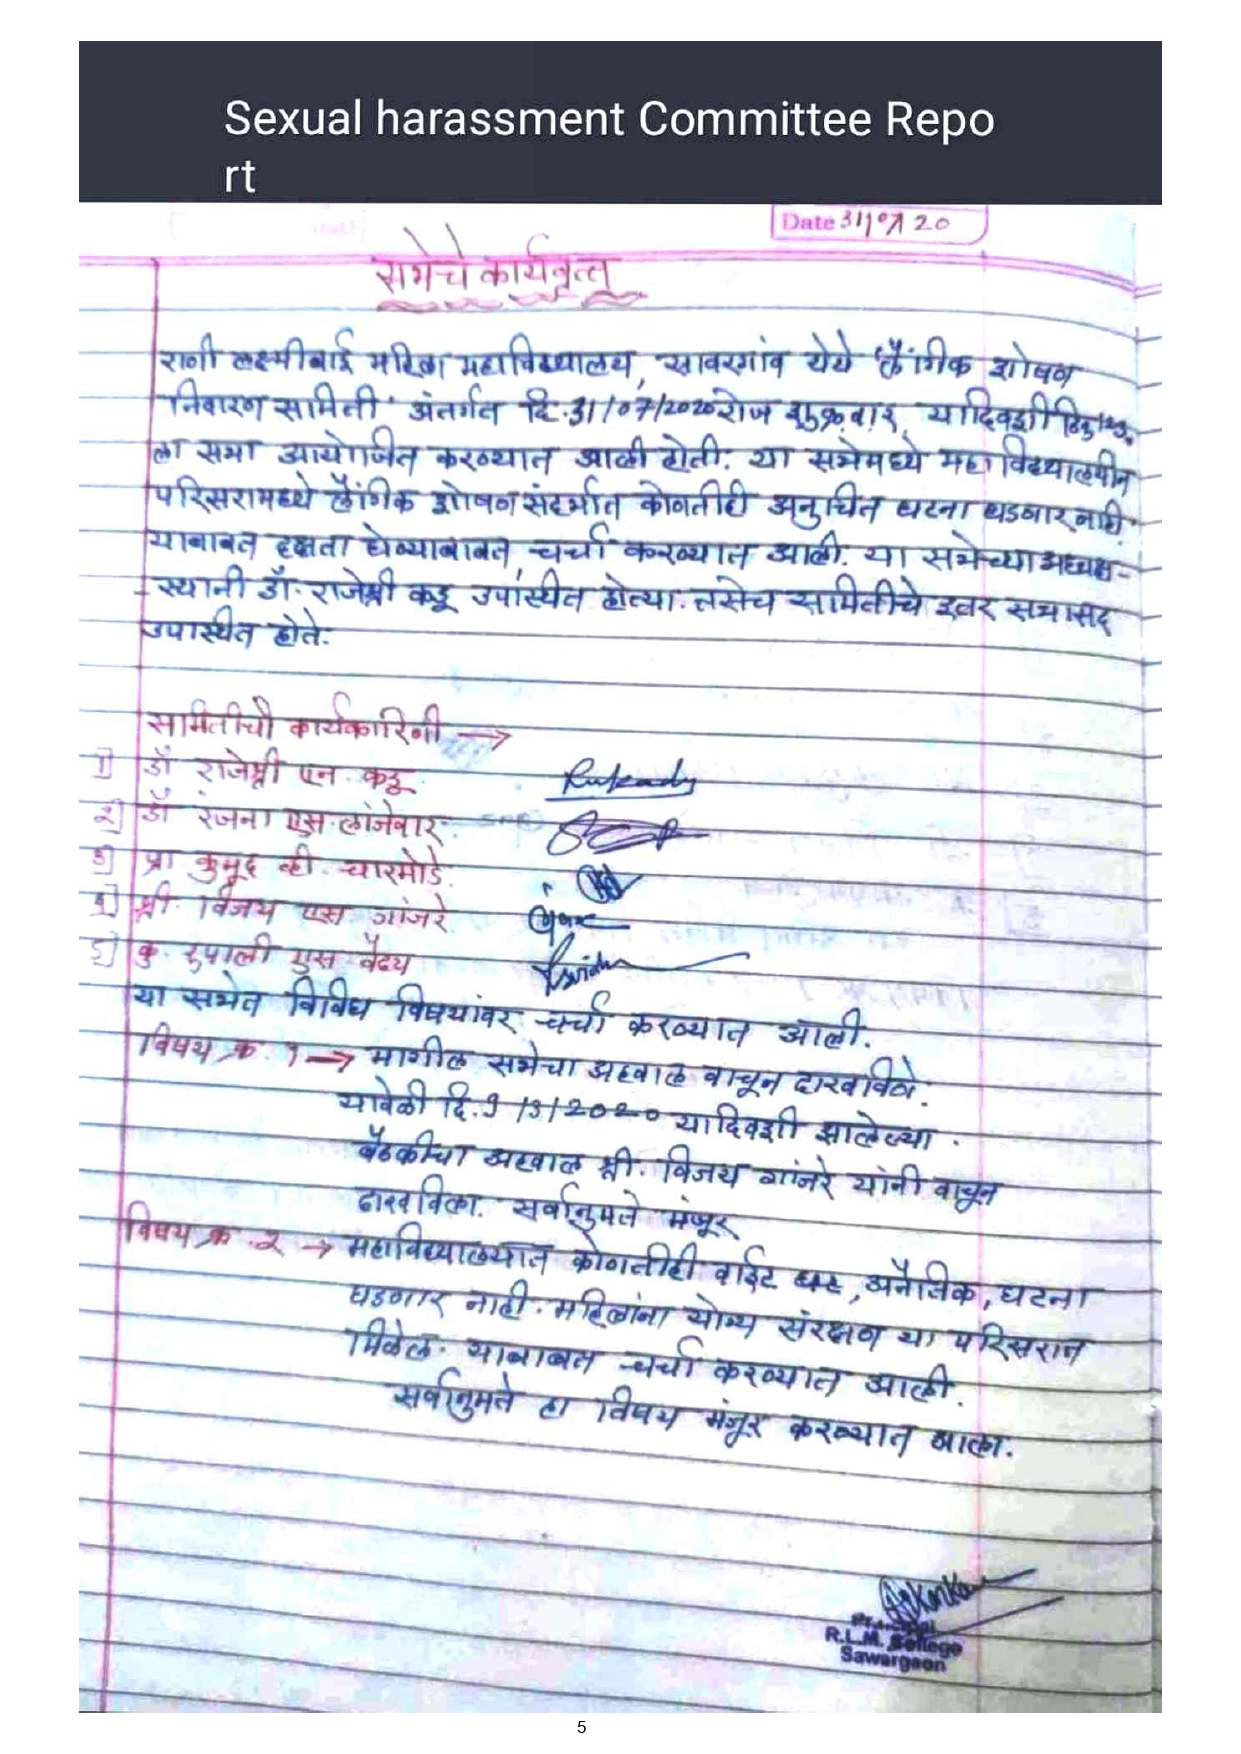 Sexual harassment Committee Repo
rt
Date 31/07/20
सभेचे कार्यवृत्त
राणी लक्ष्मीबाई महिला महाविद्यालय, सावरगांव येथे 'लैंगिक शोषण
निवारण समिती' अंतर्गत दि. 31/07/2020 रोज शुक्रवार, यादिवशी
ला सभा आयोजित करण्यात आली होती. या सभेमध्ये महाविद्यालयीन
परिसरामध्ये लैंगिक शोषण संदर्भात कोणतीही अनुचित घटना घडणार नाही
याबाबत दक्षता घेण्याबाबत चर्चा करण्यात आली. या सभेच्या अध्यक्ष-
-स्थानी डॉ. राजेश्री कडू उपस्थित होत्या. तसेच समितीचे इतर सभासद
उपस्थित होते.
समितीची कार्यकारिणी →
1) डॉ राजेश्री एन. कडू
२) डॉ रंजना एस. लांजेवार
३) प्रा कुमूद व्ही. चारमोडे.
४) श्री. विजय एस गांजरे
5) कु. रुपाली एस वैद्य
या सभेत विविध विषयांवर चर्चा करण्यात आली.
विषय क्र. १ → मागील सभेचा अहवाल वाचून दाखविणे.
यावेळी दि. 9/3/2020 यादिवशी झालेल्या
बैठकीचा अहवाल श्री. विजय गांजरे यांनी वाचून
दाखविला. सर्वानुमते मंजूर
विषय क्र. २ → महाविद्यालयात कोणतीही वाईट, अनैतिक, घटना
घडणार नाही. महिलांना योग्य संरक्षण या परिसरात
मिळेल. याबाबत चर्चा करण्यात आली.
सर्वानुमते हा विषय मंजूर करण्यात आला.
Principal
R.L.M. College
Sawargaon
5